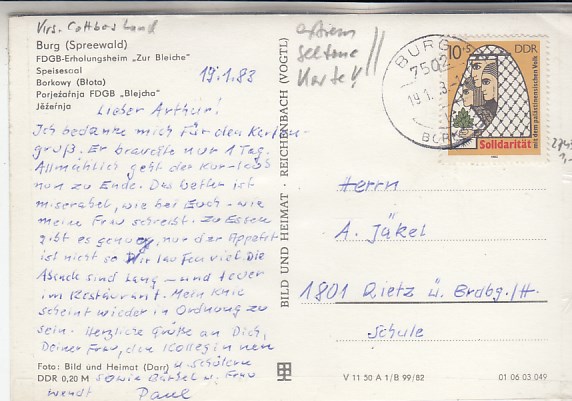 Krs. Cottbus Land
Burg (Spreewald)
FDGB-Erholungsheim „Zur Bleiche"
Speisesaal
Borkowy (Błota)
Porjeźańnja FDGB „Blejcha"
Jěźeńnja
19.1.83
extrem
seltene
Karte!
BURG
7502
19.1.83
BORKOWY
10+5
DDR
Solidarität
mit dem palästinensischen Volk
Lieber Arthur!
Ich bedanke mich für den Karten-
gruß. Er brauchte nur 1 Tag.
Allmählich geht der Kur-laub
nun zu Ende. Das Wetter ist
miserabel, wie bei Euch - wie
meine Frau schreibt. Zu Essen
gibt es genug, nur der Appetit
ist nicht so. Wir laufen viel. Die
Abende sind lang - und teuer
im Restaurant. Mein Knie
scheint wieder in Ordnung zu
sein. Herzliche Grüße an Dich,
Deiner Frau, den Kolleginnen
u. Schülern
sowie u. Frau
Paul
Foto: Bild und Heimat (Darr)
DDR 0,20 M
BILD UND HEIMAT · REICHENBACH (VOGTL)
Herrn
A. Jäkel
1801 Rietz ü. Brdbg./H.
Schule
V 11 50 A 1/B 99/82
01 06 03 049